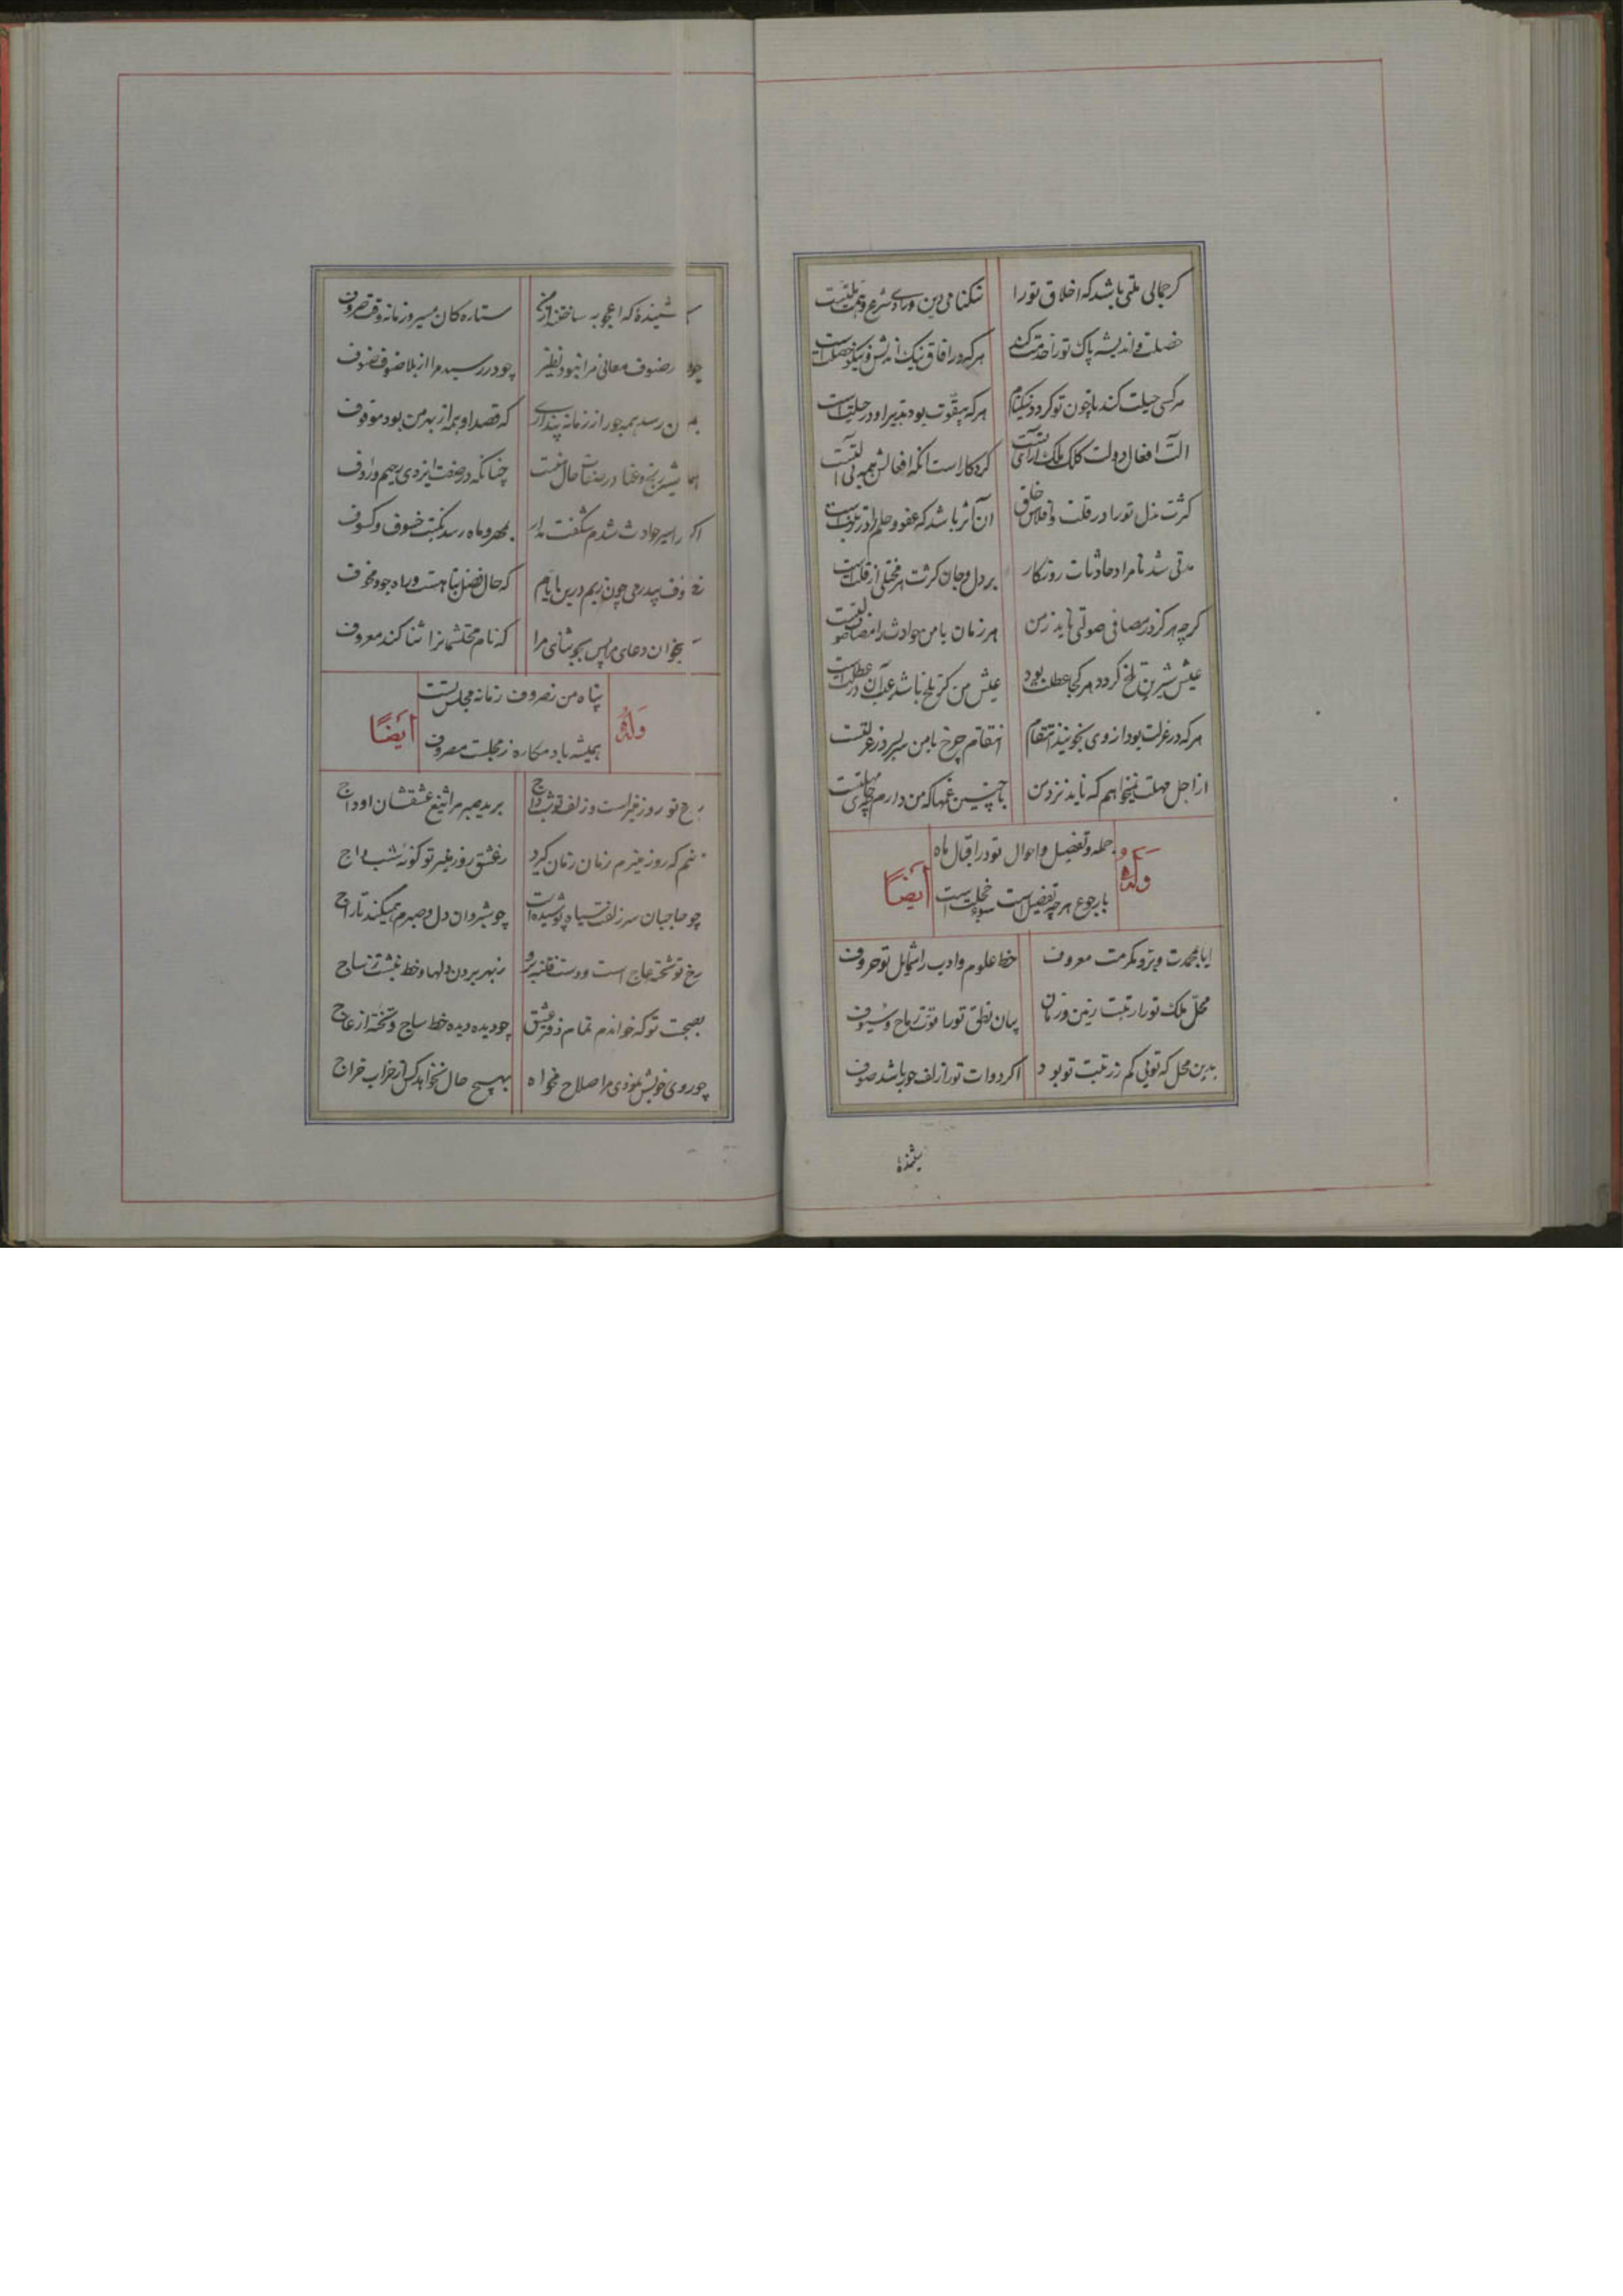 کر جمالی ملتی باشد که اخلاق تو را نیکنامی دین و رادی شرع و همت ملتست
خصلت و اندیشه پاک تو را خدمت کند هرکه در افاق نیک اندیش و نیکو خصلتست
هرکسی حیلت کند تا چون تو کردد نیکنام هرکه بیقوت بود تدبیر او در حیلتست
آلت افعال دولت کلک ملک آرای تست کردکار است انکه افعالش همه بی التست
کثرت بذل تو را در قلت افلاس خلق آن اثر باشد که عفو و حلم را در
مدتی شد تا مرا از حادثات روزکار بر دل و جان کثرت هر محنتی از قلتست
کرچه هرکز در مصافی صولتی ناید ز من هر زمان با من حوادث را مصاف و صولتست
عیش شیرین تلخ کردد هر کجا عطلت بود عیش من کر تلخ باشد در عطلتست
هرکه در عزلت بود از وی نجویند انتقام انتقام چرخ با من سربسر در عزلتست
از اجل مهلت نمیخواهم که ناید نزد من با چنین غمها که من دارم چه جای مهلتست
وله
جمله و تفصیل و احوال تو در اقبال ماه
با رجوع هرچه تفصیل است
ایضاً
ایا بمحمدت و بر و مکرمت معروف خط علوم و ادب را شمایل تو حروف
محل ملک تو را رتبت زمین و زمان بیان نطق تو را قوت رماح و سیوف
بدین محل که توئی کم ز رتبت تو بود اکر دوات تو را زلف حور باشد صوف
شنیدهٔ
شنیدهٔ که اعجوبه ساختند از من ستاره کان مسیر و زمانه وقت صروف
چو در صنوف معانی مرا نبود نظیر چو در رسید مرا از بلا صنوف صنوف
بمن رسد همه جور از زمانه پنداری که قصد او همه از بهر من بود موقوف
همایش رنج و عنا در صفات حال منست چنانکه در صفت ایزدی رحیم و رؤف
اکر اسیر حوادث شدم شکفت مدار بمهر و ماه رسد نکبت خسوف و کسوف
چون زیم درین ایام که حال فضل تباهست و راه جود مخوف
بخوان دعای مرا پس بجو ثنای مرا که نام محتشمانرا ثنا کند معروف
وله
پناه من ز صروف زمانه مجلس تست
همیشه باد مکاره ز مجلست مصروف
ایضاً
رخ تو روز منیر است و زلف تو شب داج برید صبر مرا تیغ عشقشان اوداج
منم که روز منیرم زمان زمان کیرد ز عشق روز منیر تو کونهٔ شب داج
چو حاجبان سر زلفت سیاه پوشیده است چو شبروان دل و صبرم همیکند تاراج
رخ تو تختهٔ عاج است و دست فتنه برو ز بهر بردن دلها و خط نبشت ز ساج
بصحبت تو که خواندم تمام دفتر عشق چو دیده دیده خط ساج و تختهٔ از عاج
چو روی خویش نمودی مرا صلاح مخواه بهیچ حال نخواهد کس از خراب خراج